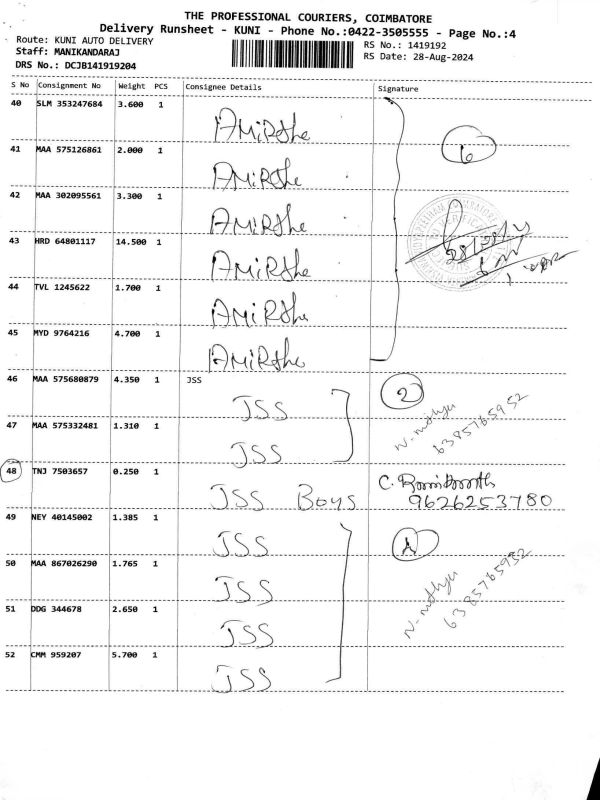 THE PROFESSIONAL COURIERS, COIMBATORE
Delivery Runsheet - KUNI - Phone No.:0422-3505555 - Page No.:4
Route: KUNI AUTO DELIVERY
RS No.: 1419192
Staff: MANIKANDARAJ
RS Date: 28-Aug-2024
DRS No.: DCJB141919204
S No Consignment No Weight PCS Consignee Details Signature
40 SLM 353247684 3.600 1
AMiRthe
6
41 MAA 575126861 2.000 1
AMiRthe
42 MAA 302095561 3.300 1
AMiRthe
43 HRD 64801117 14.500 1
AMiRthe
44 TVL 1245622 1.700 1
AMiRthe
45 MYD 9764216 4.700 1
AMiRthe
46 MAA 575680879 4.350 1 JSS
JSS
2
N. mithya
6385765952
47 MAA 575332481 1.310 1
JSS
48 TNJ 7503657 0.250 1
JSS Boys
C.
9626253780
49 NEY 40145002 1.385 1
JSS
50 MAA 867026290 1.765 1
JSS
N. mithya
6385765952
51 DDG 344678 2.650 1
JSS
52 CMM 959207 5.700 1
JSS